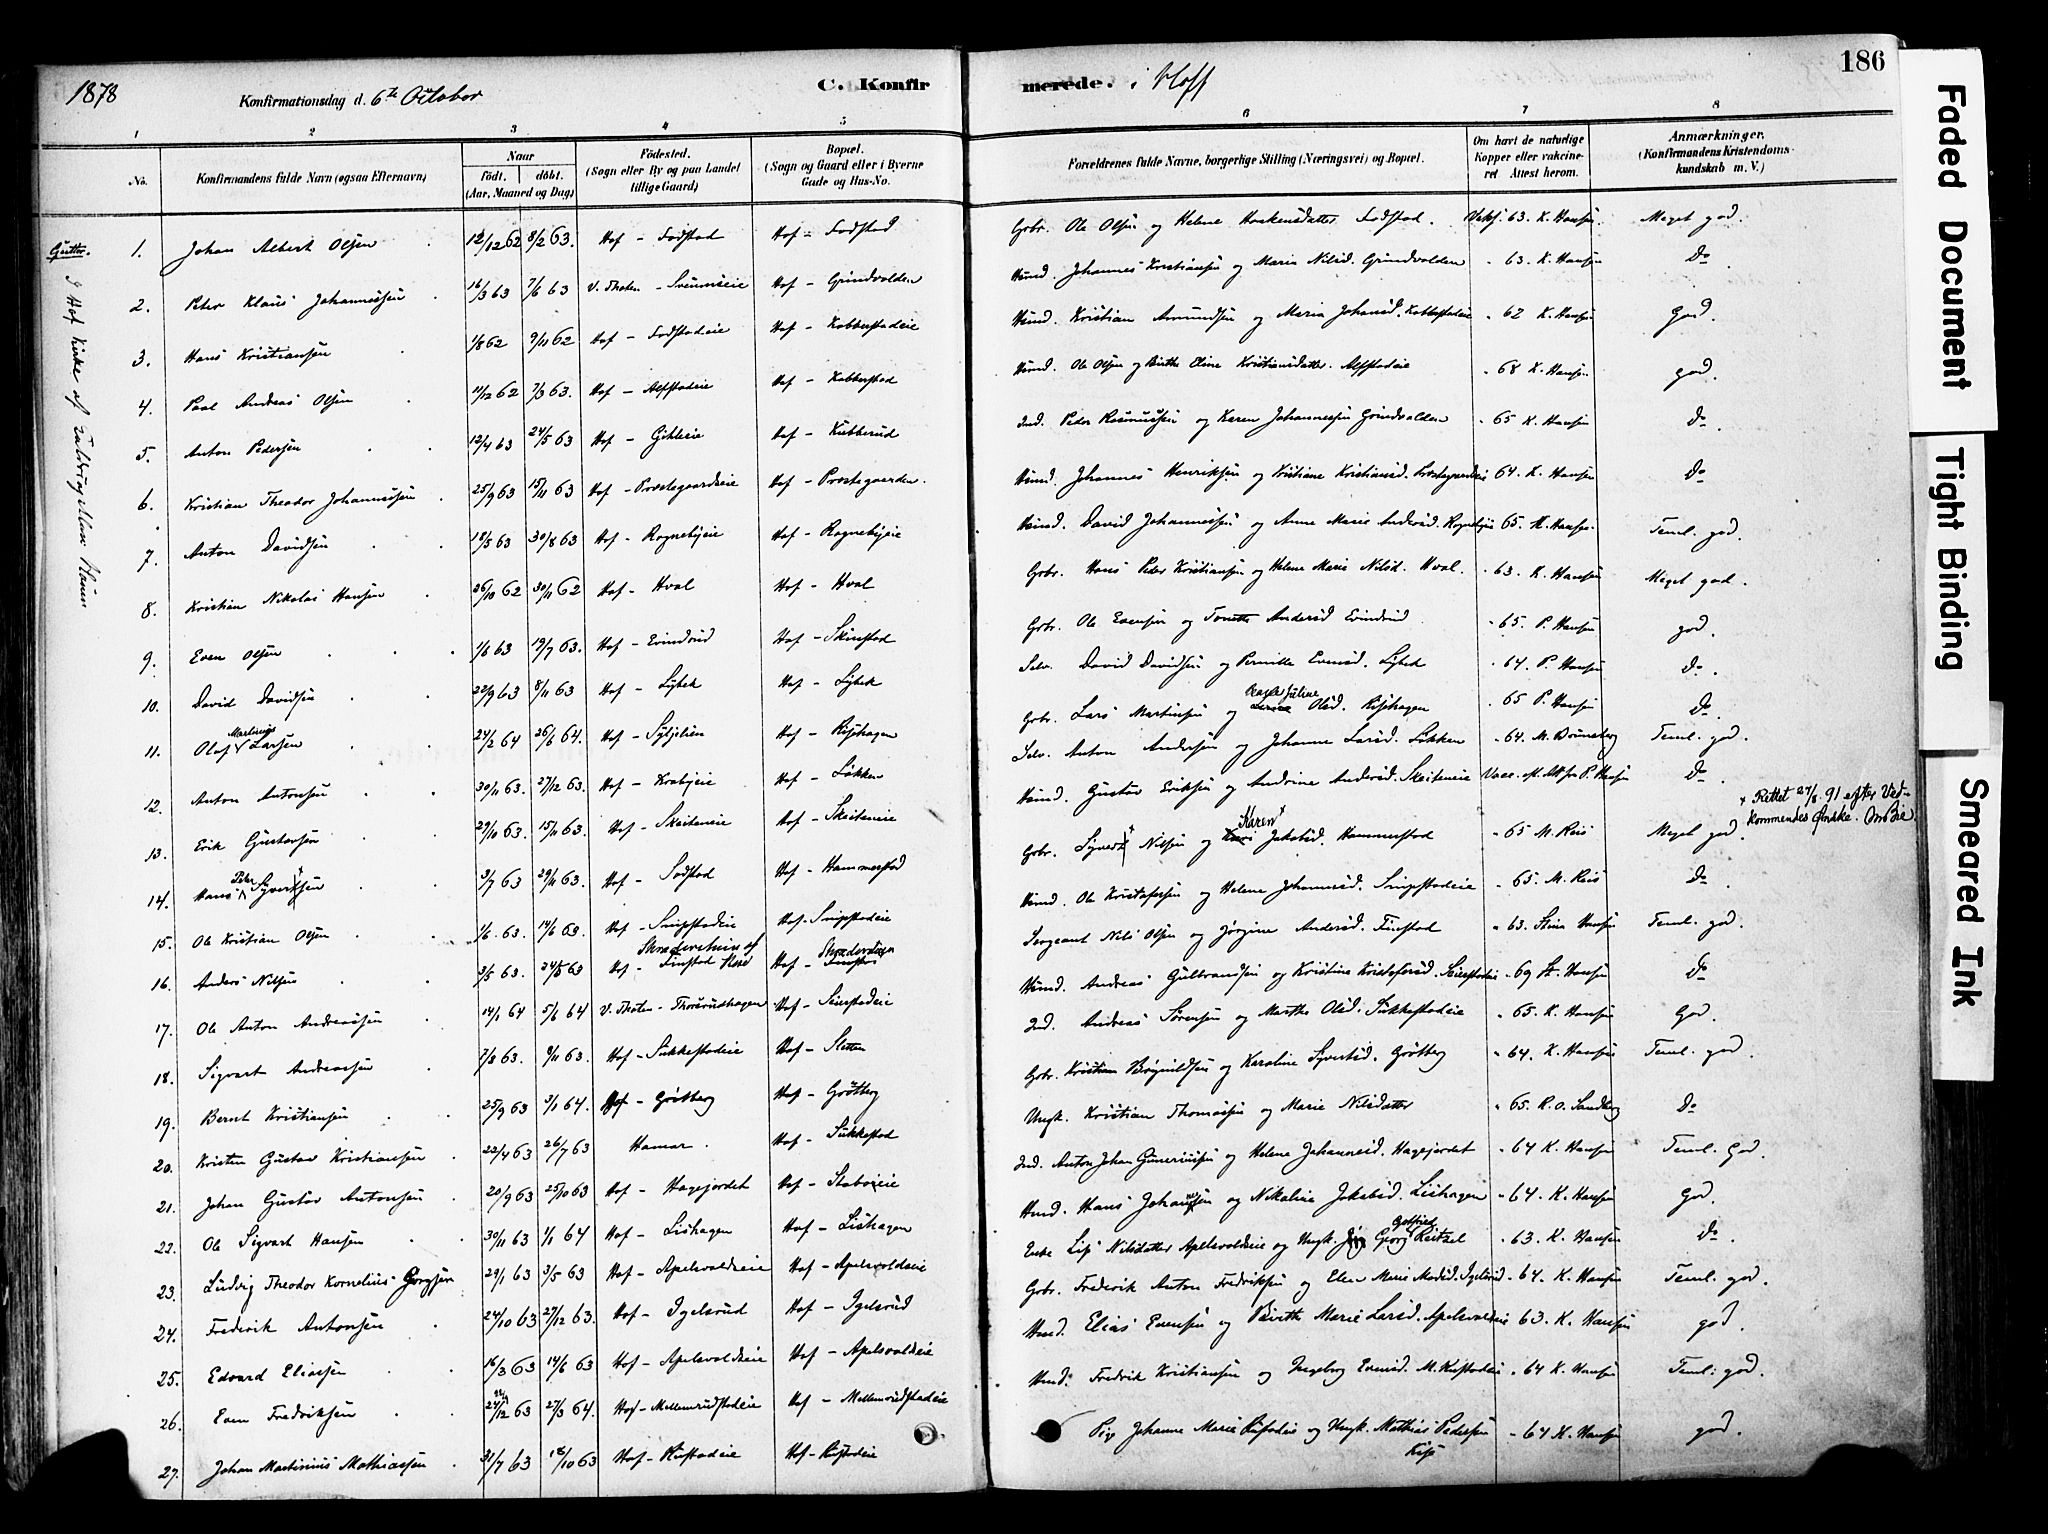 1878
Konfirmationsdag d. 6te October
C. Konfir
merede. i Hoff
186
1 2 3 4 5 6 7 8
No.
Konfirmandens fulde Navn (ogsaa Efternavn)
Naar
födt. döbt.
(Aar, Maaned og Dag)
Födested.
(Sogn eller By og paa Landet
tillige Gaard)
Bopæl.
(Sogn og Gaard eller i Byerne
Gade og Hus-No.
Forældrenes fulde Navne, borgerlige Stilling (Næringsvei) og Bopæl.
Om havt de naturlige
Kopper eller vakcine-
ret Attest herom.
Anmærkninger.
(Konfirmandens Kristendoms-
kundskab m. V.)
Gutter.
I Hof Kirke af
1. Johan Albert Olsen 12/12 62 8/2 63. Hof - Fodstad Hof - Fodstad Gbr. Ole Olsen og Helene Haakensdatter Fodstad. 63. K. Hansen. Meget god.
2. Peter Klaus Johannessen 16/3 63 7/6 63 V. Thoten - Hof - Grindvolden Huusmd. Johannes Kristiansen og Maria Nilsd. Grindvolden " 63. K. Hansen Do
3. Hans Kristiansen 1/8 62 9/11 62 Hof - Fodstadeie Hof - Kobberstadeie Kristian Amundsen og Maria Johansd. Kobberstadeie " 62 K. Hansen God.
4. Paal Andreas Olsen 11/12 62 7/3 63. Hof - Alfstadeie Hof - Kobberstad Ole Olsen og Birthe Eline Kristiansdatter. Alfstadeie " 68 K. Hansen god.
5. Anton Pedersen 12/4 63 24/5 63 Hof - Hof - Kubberud Ind. Peder Rasmussen og Karen Johannessen Grindvolden " 65 K. Hansen Do.
6. Kristian Theodor Johannessen 25/9 63 15/11 63 Hof - Præstegaardseie Hof - Præstegaarden. Johannes Henriksen og Kristiane Kristiansd. Præstegaardseie " 64. K. Hansen Do
7. Anton Davidsen 18/5 63 30/8 63 Hof - Rognebyeie Hof - Rognebyeie David Johannessen og Anne Marie Andersd. Rognebyeie 65. K. Hansen. Teml. god.
8. Kristian Nikolai Hansen 26/10 62 30/11 62 Hof - Hval Hof - Hval Gbr. Hans Peder Kristiansen og Helene Marie Nilsd. Hval. " 63. K. Hansen Meget god.
9. Even Olsen 1/6 63 19/7 63. Hof - Evindrud Hof - Skinstad Gbr. Ole Evensen og Tonette Andersd Evindrud " 65. P. Hansen god.
10. David Davidsen 22/9 63 8/11 63 Hof - Lybek Hof - Lybek Selv. David Davidsen og Pernille Evensd. Lybek " 64. P. Hansen Do.
11. Olaf Martinius Larsen 24/2 64 26/6 64. Hof - Hof - Rishagen Gbr. Lars Martinsen og Olsd. Rishagen " 65 P. Hansen Do
12. Anton Antonsen 30/11 63. 27/12 63. Hof - Krabyeie Hof - Lökken Selv. Anton Andersen og Johanne Larsd. Lökken " 64. M. Brunsberg Teml. god.
13. Erik Gustavsen 29/10 63. 15/11 63. Hof - Skeiteneie Hof - Skeiteneie Gustav Eriksen og Andrine Andersd. Skeiteneie Vacc. P. Hansen Do.
14. Hans Peter Syvertsen 3/7 63 29/11 63. Hof - Sodstad Hof - Hammerstad Gbr. Syvert Nilsen og Karen Jakobsd. Hammerstad " 65 M. Reis Meget god.
+ Rettet 27/8 91 efter Ved-
kommendes Ønske.
15. Ole Kristian Olsen 1/6. 63. 14/6 63. Hof - Snipstadeie Hof - Snipstadeie Ole Kristofersen og Helene Johannesd. Snipstadeie " 65. M. Reis Do.
16. Anders Nilsen 3/5 63. 24/5 63 Hof - Finstad Hof - Sergeant Nils Olsen og Jørgine Andersd. Finstad " 63. Stina Hansen Teml. god.
17. Ole Anton Andreassen 14/1 64 5/6 64 V. Thoten - Thorsrudhagen Hof - Seierstadeie Andreas Gulbrandsen og Kristine Kristofersd. Seierstadeie " 69 St. Hansen Do
18. Sigvart Andreassen 7/8 63. 9/11 63. Hof - Sukkestadeie Hof - Sletten Ind. Andreas Sørensen og Marthe Olsd. Sukkestadeie " 65. K. Hansen God.
19. Bernt Kristiansen 25/9 63 3/1 64. Hof - Grötberg Hof - Grötberg Gbr. Kristian Børgvildsen og Karoline Syvertsd. Grötberg " 64. K. Hansen Teml. god.
20. Kristen Gustav Kristiansen 22/4 63 26/7 63 Hamar. Hof - Sukkestad Ungk. Kristian Thomassen og Marie Nilsdatter " 65. R. O. Sandberg Do
21. Johan Gustav Antonsen 20/9 63 25/10 63 Hof - Hagejordet Hof - Staboeeie Ind. Anton Johan Gunerinusen og Helene Johannesd. Hagejordet " 64 K. Hansen Teml. God.
22. Ole Sigvart Hansen 30/11 63 1/1 64 Hof - Lishagen Hof - Lishagen Hans Johannessen og Nikoline Jakobsd. Lishagen " 64. K. Hansen God.
23. Ludvig Theodor Kornelius Georgsen 29/1 63 3/5 63 Hof - Apelsvoldseie Hof - Apelsvoldseie Enke Lisp Nilsdatter Apelsvoldeie og Ungk. Georg Gotfried Reitzel " 63. K. Hansen Do.
24. Frederik Antonsen 24/10 63 27/12 63. Hof - Igelsrud Hof - Igelsrud Gbr. Frederik Anton Fredriksen og Elen Marie Madsd. Igelsrud " 64. K. Hansen Teml. god.
25. Edvard Eliassen 16/3 63 14/6 63 Hof - Apelsvoldseie Hof - Apelsvoldseie Elias Evensen og Berith Marie Larsd. Apelsvoldeie 63. K. Hansen god.
26. Even Fredriksen 24/12 63 27/3 64. Hof - Mellemrudstadeie Hof - Mellemrudstadeie Fredrik Kristiansen og Ingeborg Evensd. " 64 K. Hansen Teml. god.
27. Johan Martinius Mathiassen 31/7 63 18/10 63 Hof - Rustadeie Hof - Rustadeie Pige Johanne Marie og Ungk. Mathias Pedersen " 64 K. Hansen god.
Faded Document
Tight Binding
Smeared Ink